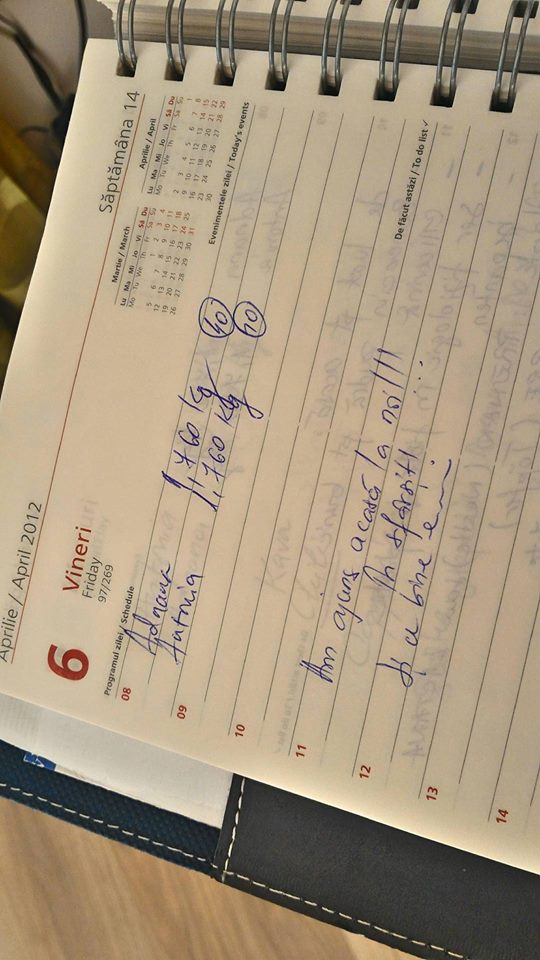 Aprilie / April 2012
Săptămâna 14
6
Vineri
Friday
97/269
Martie / March
Lu Ma Mi Jo Vi Sâ Du
Mo Tu We Th Fr Sa Su
1 2 3 4
5 6 7 8 9 10 11
12 13 14 15 16 17 18
19 20 21 22 23 24 25
26 27 28 29 30 31
Aprilie / April
Lu Ma Mi Jo Vi Sâ Du
Mo Tu We Th Fr Sa Su
1
2 3 4 5 6 7 8
9 10 11 12 13 14 15
16 17 18 19 20 21 22
23 24 25 26 27 28 29
30
Programul zilei / Schedule
Evenimentele zilei / Today's events
08
Adriana 1,760 kg 40
09
Antonia 1,760 kg 10
10
11
Am ajuns acasă la noi!!!
12
În sfârșit!
De făcut astăzi / To do list ✓
Și ce bine e...
13
14